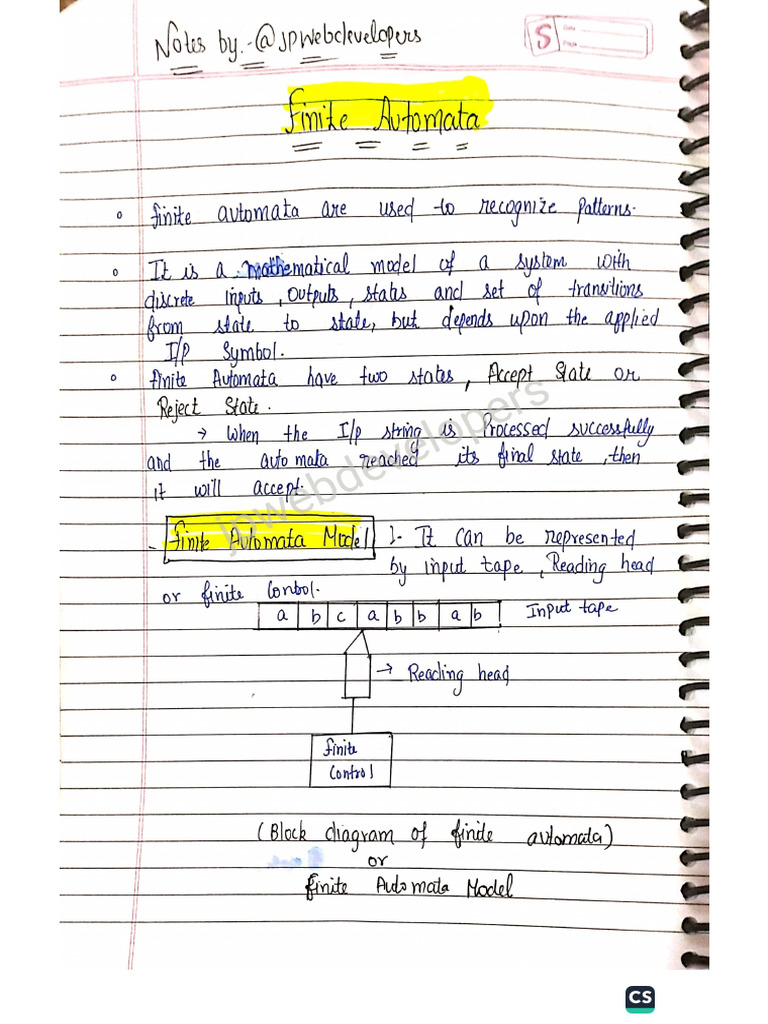 Notes by.-@jpwebdevelopers
S
Date
Page
Finite Automata
finite automata are used to recognize patterns.
It is a mathematical model of a system with
discrete inputs, outputs, states and set of transitions
from state to state, but depends upon the applied
I/P Symbol.
finite Automata have two states, Accept State or
Reject State.
→ When the I/p string is Processed successfully
and the automata reached its final state, then
it will accept.
jpwebdevelopers
- finite Automata Model :- It can be represented
by input tape, Reading head
or finite Control.
a b c a b b a b Input tape
→ Reading head
finite
Control
(Block diagram of finite automata)
or
finite Automata Model
CS